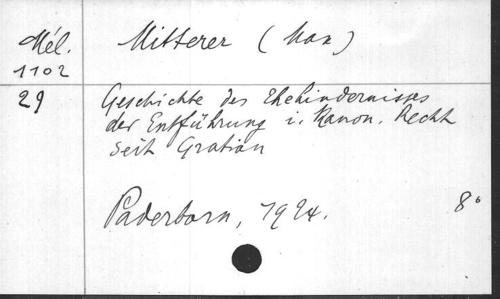 Mél. 1102
29
Mitterer (Max)
Geschichte des Ehehindernisses
der Entführung i. Kanon. Recht
seit Gratian
Paderborn, 1924.
8°